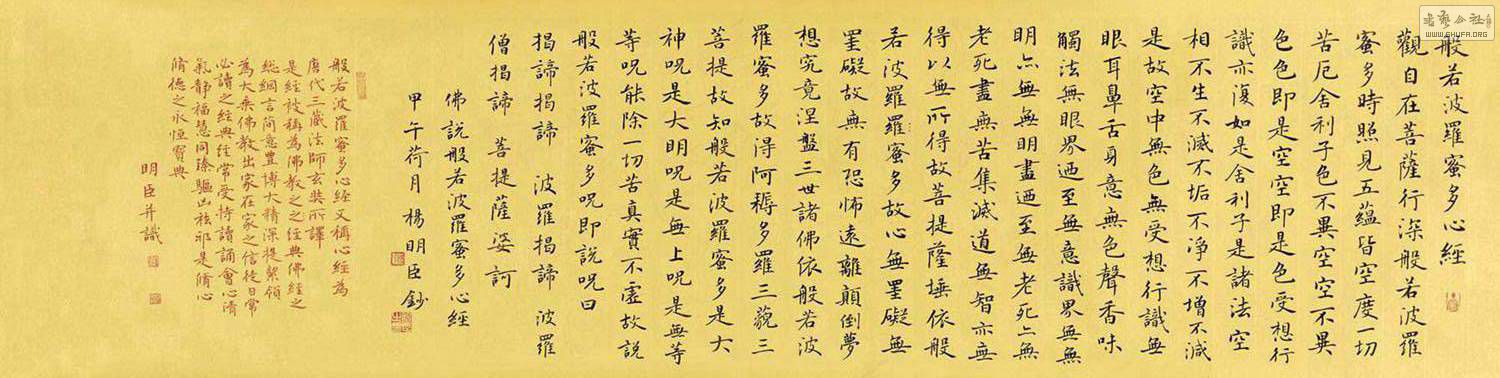 般若波羅蜜多心經
觀自在菩薩行深般若波羅
蜜多時照見五蘊皆空度一切
苦厄舍利子色不異空空不異
色色即是空空即是色受想行
識亦復如是舍利子是諸法空
相不生不滅不垢不淨不增不減
是故空中無色無受想行識無
眼耳鼻舌身意無色聲香味
觸法無眼界迺至無意識界無無
明亦無無明盡迺至無老死亦無
老死盡無苦集滅道無智亦無
得以無所得故菩提薩埵依般
若波羅羅蜜多故心無罣礙無
罣礙故無有恐怖遠離顛倒夢
想究竟涅盤三世諸佛依般若波
羅蜜多故得阿耨多羅三藐三
菩提故知般若波羅蜜多是大
神呪是大明呪是無上呪是無等
等呪能除一切苦真實不虛故說
般若波羅蜜多呪即說呪曰
揭諦揭諦 波羅揭諦 波羅
僧揭諦 菩提薩婆訶
佛說般若波羅蜜多心經
甲午荷月楊明臣鈔
般若波羅蜜多心經又稱心經為
唐代三藏法師玄奘所譯
是經被稱為佛教之之經典佛經之
總綱言簡意豊博大精深提契領
為大乘佛教出家在家之信徒日常
必讀之經典經常受持讀誦會心清
氣靜福慧同臻驅凶祛邪是脩心
脩德之永恒寶典
明臣并識
書藝公社
WWW.SHUFA.ORG